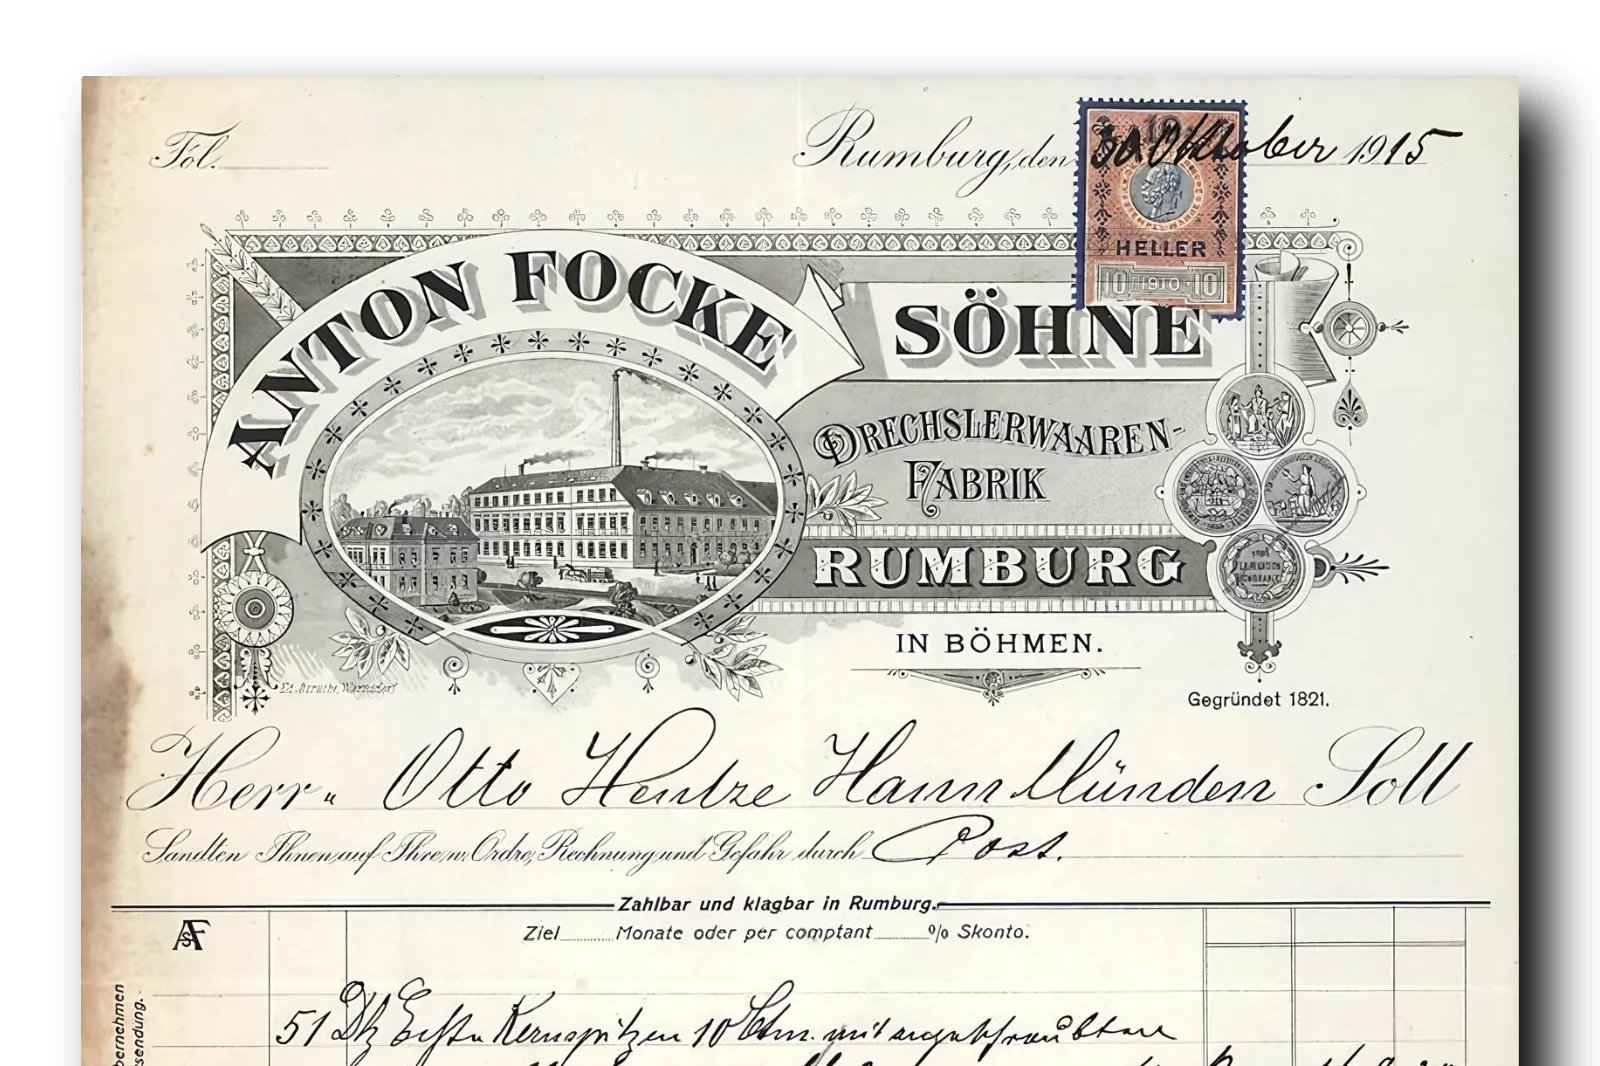 Fol.
Rumburg, den 30. Oktober 1915
HELLER
10 1910 10
ANTON FOCKE SÖHNE
DRECHSLERWAAREN-
FABRIK
RUMBURG
IN BÖHMEN.
Gegründet 1821.
Herrn Otto Hentze Hann Münden Soll
Sandten Ihnen auf Ihre w. Ordre, Rechnung und Gefahr durch Post.
Zahlbar und klagbar in Rumburg.
Ziel Monate oder per comptant % Skonto.
AFS
51 Dtz Kernspitzen 10 Ctm. mit angeschraubten
bernehmen
sendung.